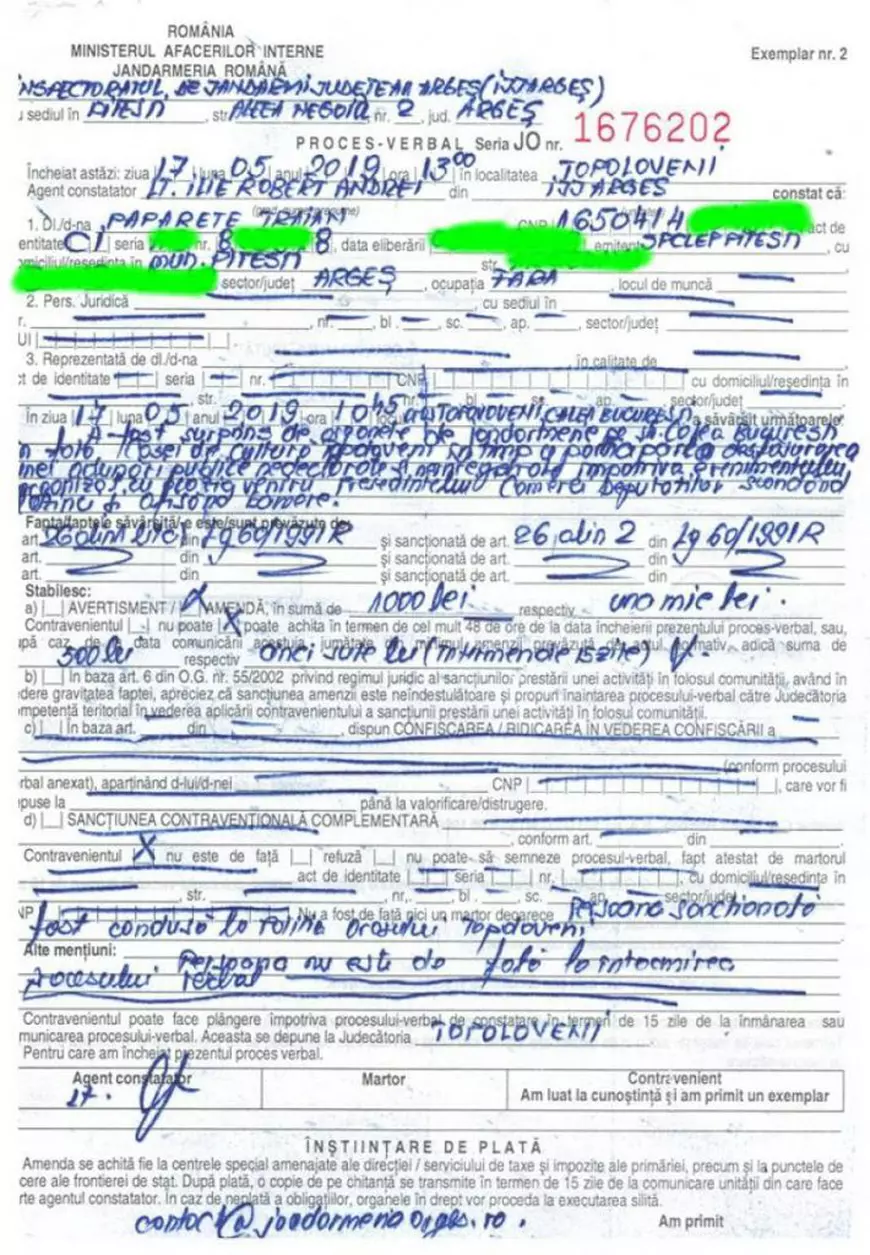 ROMÂNIA
MINISTERUL AFACERILOR INTERNE
JANDARMERIA ROMÂNĂ
Exemplar nr. 2
INSPECTORATUL DE JANDARMI JUDEȚEAN ARGEȘ (IJJ ARGEȘ)
u sediul în PITESTI, str. ALEEA NEGOIU, nr. 2, jud. ARGEȘ
PROCES-VERBAL Seria JO nr. 1676202
Încheiat astăzi: ziua 17 luna 05 anul 2019 ora 13⁰⁰ în localitatea TOPOLOVENI
Agent constatator LT. ILIE ROBERT ANDREI din IJJ ARGES constat că:
1. Dl./d-na PAPARETE TRAIAN CNP 1650414 act de
entitate CI seria nr. 8 8, data eliberării emitent SPCLEP PITESTI, cu
domiciliul/reședința în MUN. PITESTI str.
sector/județ ARGEȘ, ocupația FARA, locul de muncă
2. Pers. Juridică cu sediul în
r. nr. bl. sc. ap. sector/județ
UI
3. Reprezentată de dl./d-na în calitate de
ct de identitate seria nr. CNP cu domiciliul/reședința în
str. nr. bl. sc. ap. sector/județ
În ziua 17 luna 05 anul 2019 ora 10⁴⁵ TOPOLOVENI, CALEA BUCURESTI a săvârșit următoarele:
A fost surprins de organele de jandarmerie pe str. Calea Bucuresti
in fata Casei de Cultura Topoloveni in timp a participat la desfasurarea
unei adunari publice nedeclarate si neinregistrate impotriva evenimentului
organizat cu ocazia venirii Presedintelui Camerei Deputatilor scandand
si afisand bannere.
Fapta/faptele săvârșită/-e este/sunt prevăzute de:
art. 26 alin 1 lit d din Lg 60/1991 R și sancționată de art. 26 alin 2 din Lg 60/1991 R
art. din și sancționată de art. din
art. din și sancționată de art. din
Stabilesc:
a) |_| AVERTISMENT / X AMENDĂ, în sumă de 1000 lei respectiv una mie lei.
Contravenientul |_| nu poate |X| poate achita în termen de cel mult 48 de ore de la data încheierii prezentului proces-verbal, sau,
upă caz de la data comunicării acestuia, jumătate din minimul amenzii prevăzută de actul normativ, adică suma de
500 lei respectiv cinci sute lei
b) |_| În baza art. 6 din O.G. nr. 55/2002 privind regimul juridic al sancțiunilor prestării unei activități în folosul comunității, având în
dere gravitatea faptei, apreciez că sancțiunea amenzii este neîndestulătoare și propun înaintarea procesului-verbal către Judecătoria
ompetentă teritorial în vederea aplicării contravenientului a sancțiunii prestării unei activități în folosul comunității.
c) |_| În baza art. din , dispun CONFISCAREA / RIDICAREA ÎN VEDEREA CONFISCĂRII a
(conform procesului
rbal anexat), aparținând d-lui/d-nei CNP , care vor fi
epuse la până la valorificare/distrugere.
d) |_| SANCȚIUNEA CONTRAVENȚIONALĂ COMPLEMENTARĂ
, conform art. din
Contravenientul |X| nu este de față |_| refuză |_| nu poate să semneze procesul-verbal, fapt atestat de martorul
act de identitate seria nr. , cu domiciliul/reședința în
, str. , nr. bl. sc. ap. sector/județ
NP Nu a fost de față nici un martor deoarece persoana sanctionată
fost condusă la Politia Orasului Topoloveni
Alte mențiuni: Persoana nu este de fată la întocmirea
procesului verbal
Contravenientul poate face plângere împotriva procesului-verbal de constatare în termen de 15 zile de la înmânarea sau
municarea procesului-verbal. Aceasta se depune la Judecătoria TOPOLOVENI
Pentru care am încheiat prezentul proces verbal.
Agent constatator Martor Contravenient
Am luat la cunoștință și am primit un exemplar
LT.
ÎNȘTIINȚARE DE PLATĂ
Amenda se achită fie la centrele special amenajate ale direcției / serviciului de taxe și impozite ale primăriei, precum și la punctele de
cere ale frontierei de stat. După plată, o copie de pe chitanță se transmite în termen de 15 zile de la comunicare unității din care face
rte agentul constatator. În caz de neplată a obligațiilor, organele în drept vor proceda la executarea silită.
contact@jandarmeriaarges.ro.
Am primit